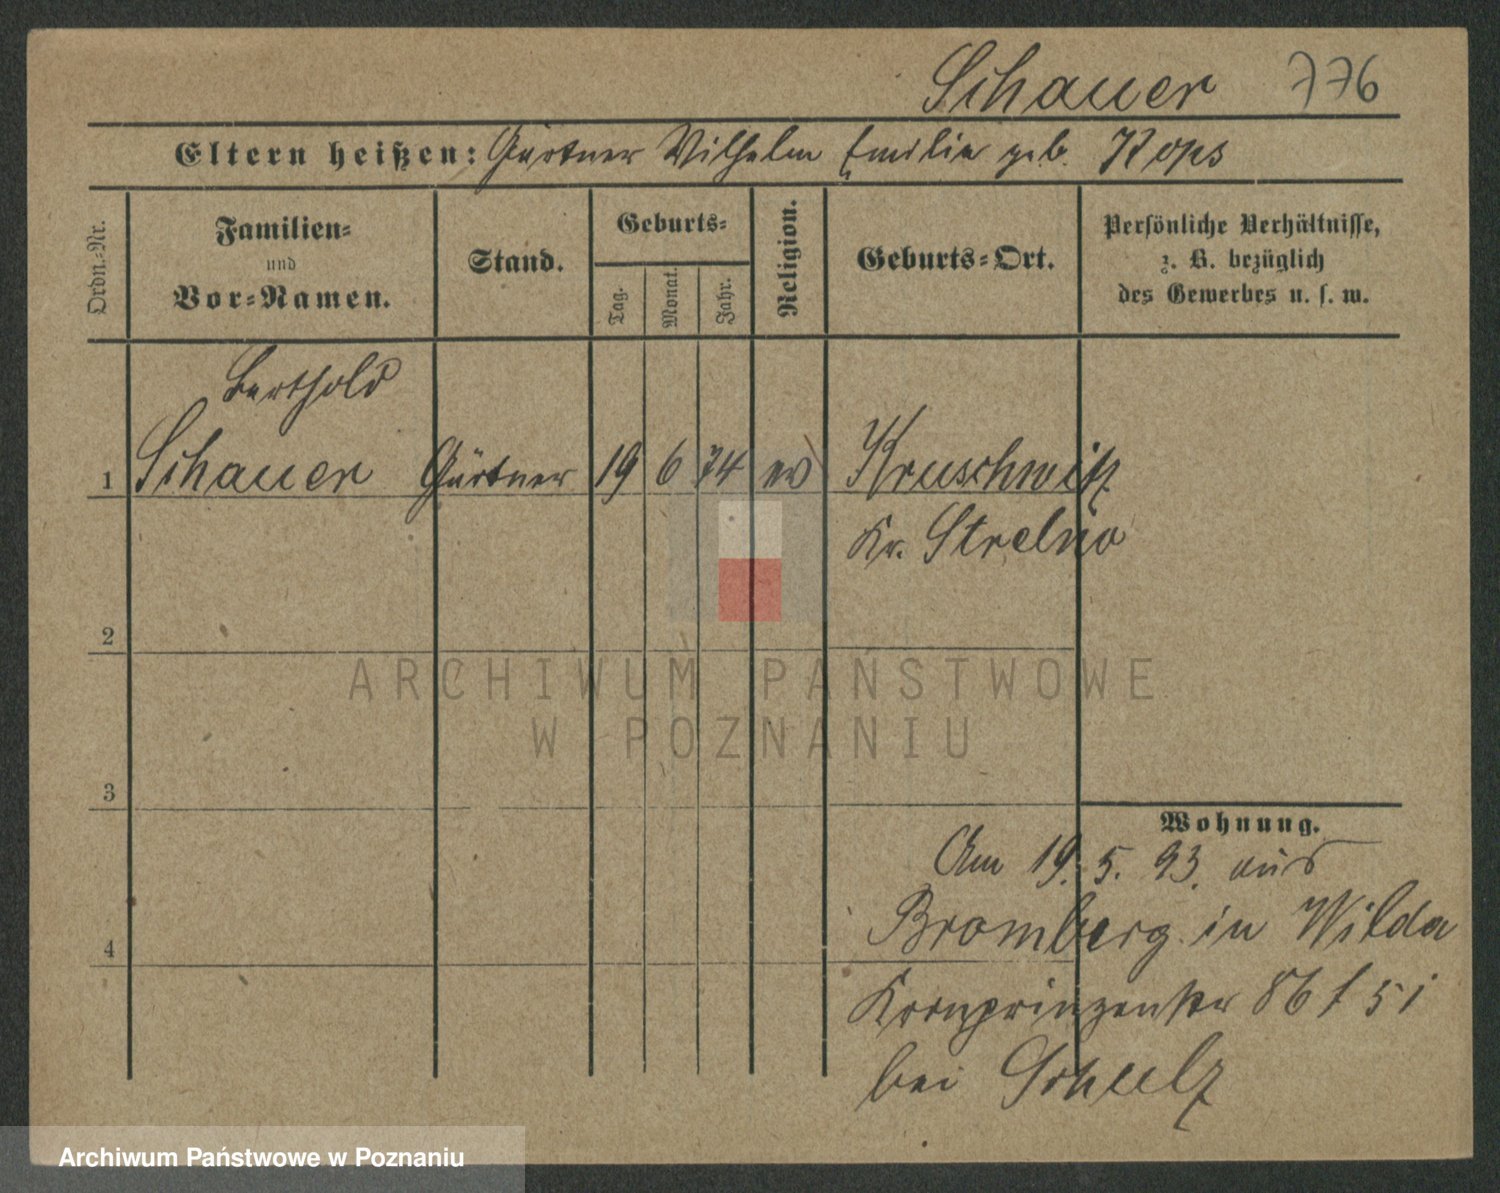 Schauer 776
Eltern heißen: Gärtner Wilhelm Emilie geb. Kops
Ordn.-Nr.
Familien-
und
Vor-Namen.
Stand.
Geburts-
Tag.
Monat.
Jahr.
Religion.
Geburts-Ort.
Persönliche Verhältnisse,
z. B. bezüglich
des Gewerbes u. s. w.
Berthold
1 Schauer Gärtner 19 6 74 ev Kruschwitz
Kr. Strelno
2
ARCHIWUM PAŃSTWOWE
W POZNANIU
3
Wohnung.
Am 19. 5. 93. aus
4 Bromberg in Wilda
Kronprinzenstr 86
bei Schulz
Archiwum Państwowe w Poznaniu